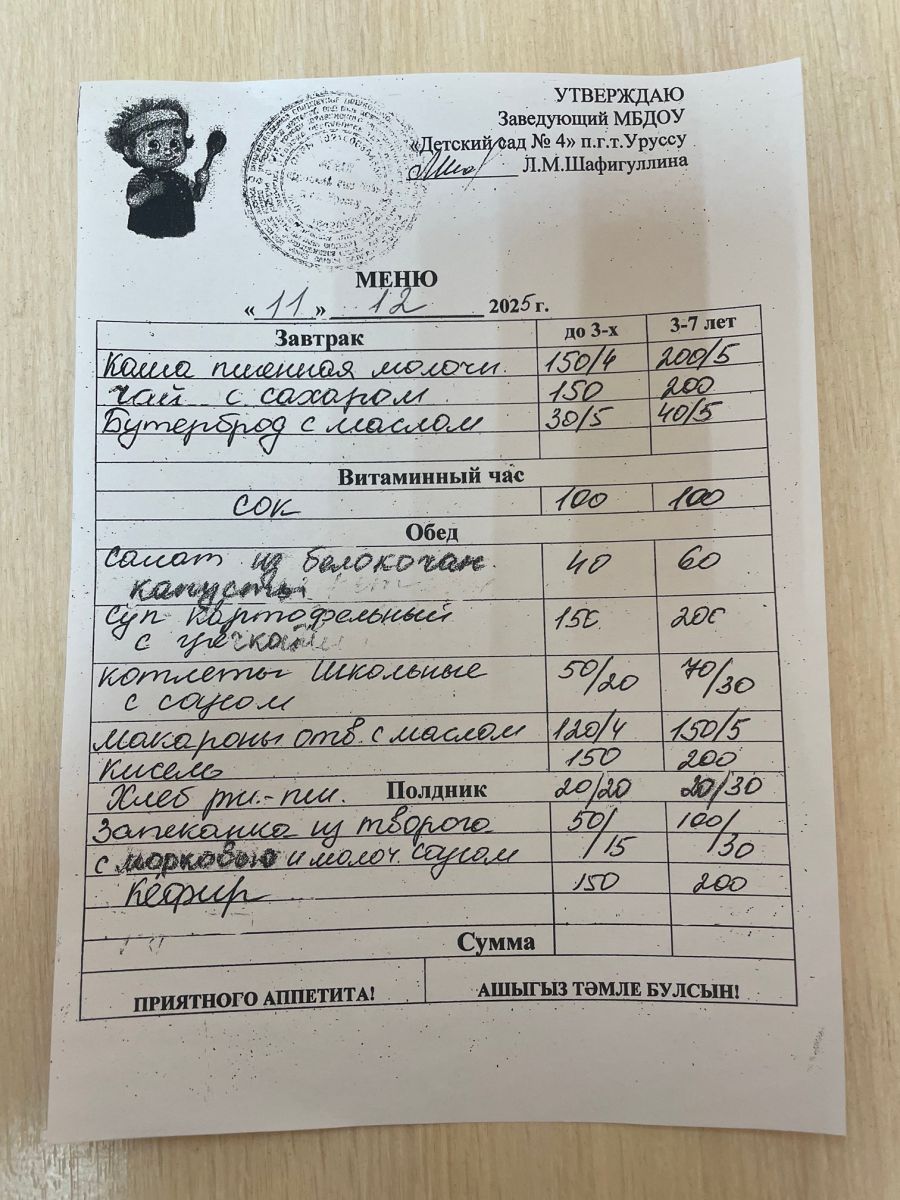 УТВЕРЖДАЮ
Заведующий МБДОУ
«Детский сад № 4» п.г.т.Уруссу
Л.М.Шафигуллина
МЕНЮ
« 11 » 12 2025 г.
Завтрак до 3-х 3-7 лет
Каша пшенная молочн. 150/4 200/5
Чай с сахаром 150 200
Бутерброд с маслом 30/5 40/5
Витаминный час
сок 100 100
Обед
Салат из белокочан 40 60
капусты
Суп картофельный 150 200
с
котлеты Школьные 50/20 70/30
с соусом
макароны отв. с маслом 120/4 150/5
кисель 150 200
Хлеб рж.-пш. Полдник 20/20 20/30
Запеканка из творога 50/15 100/30
с морковью и молоч. соусом
Кефир 150 200
Сумма
ПРИЯТНОГО АППЕТИТА! АШЫГЫЗ ТӘМЛЕ БУЛСЫН!